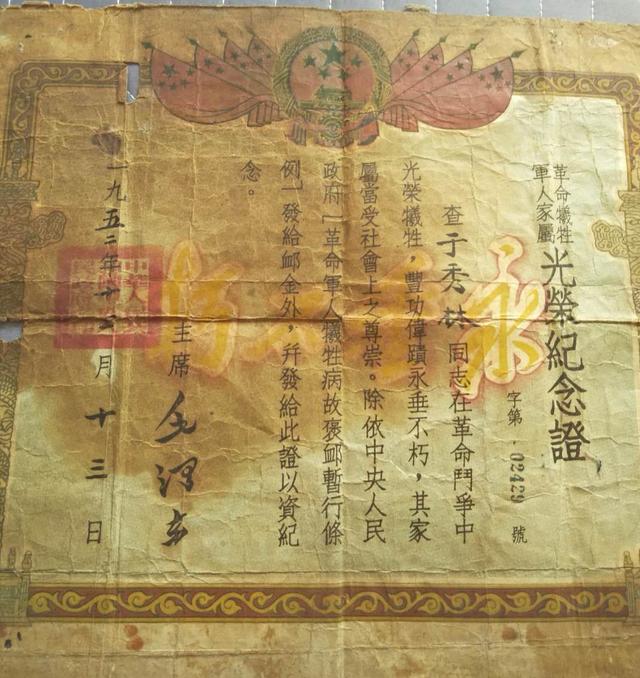 革命犧牲
軍人家屬
光榮紀念證
字第 02429 號
查于秀林同志在革命鬥爭中
光榮犧牲，豐功偉蹟永垂不朽，其家
屬當受社會上之尊崇。除依中央人民
政府「革命軍人犧牲病故褒卹暫行條
例」發給卹金外，幷發給此證以資紀
念。
主席 毛澤东
一九五二年十二月十三日
永垂不朽